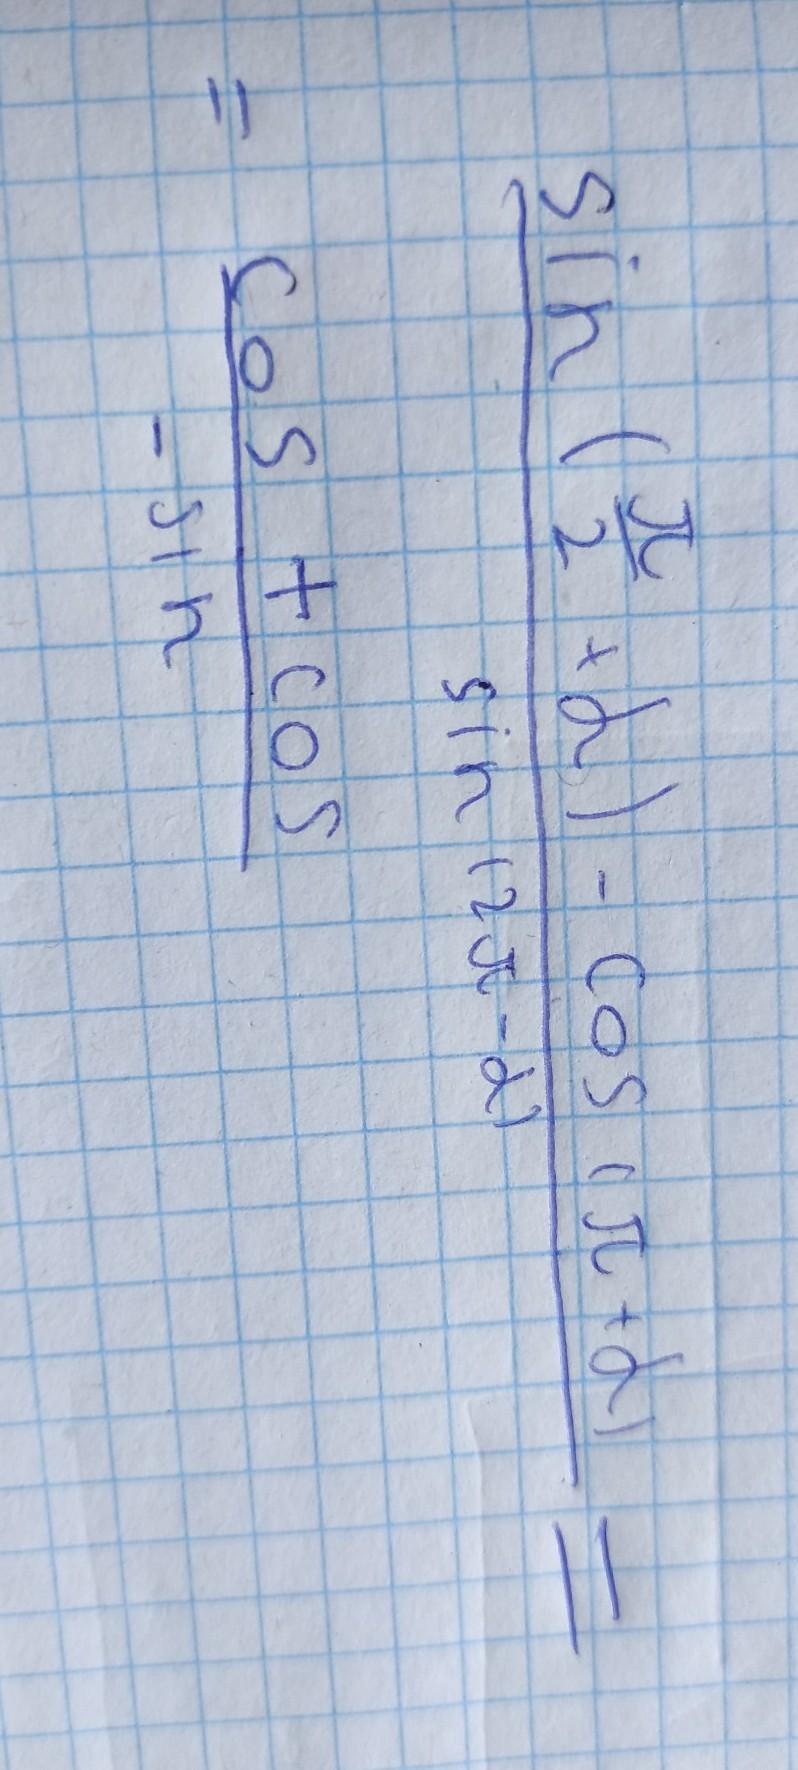 sin (π/2 + α) - cos (π + α) =
sin (2π - α)
= cos + cos
- sin